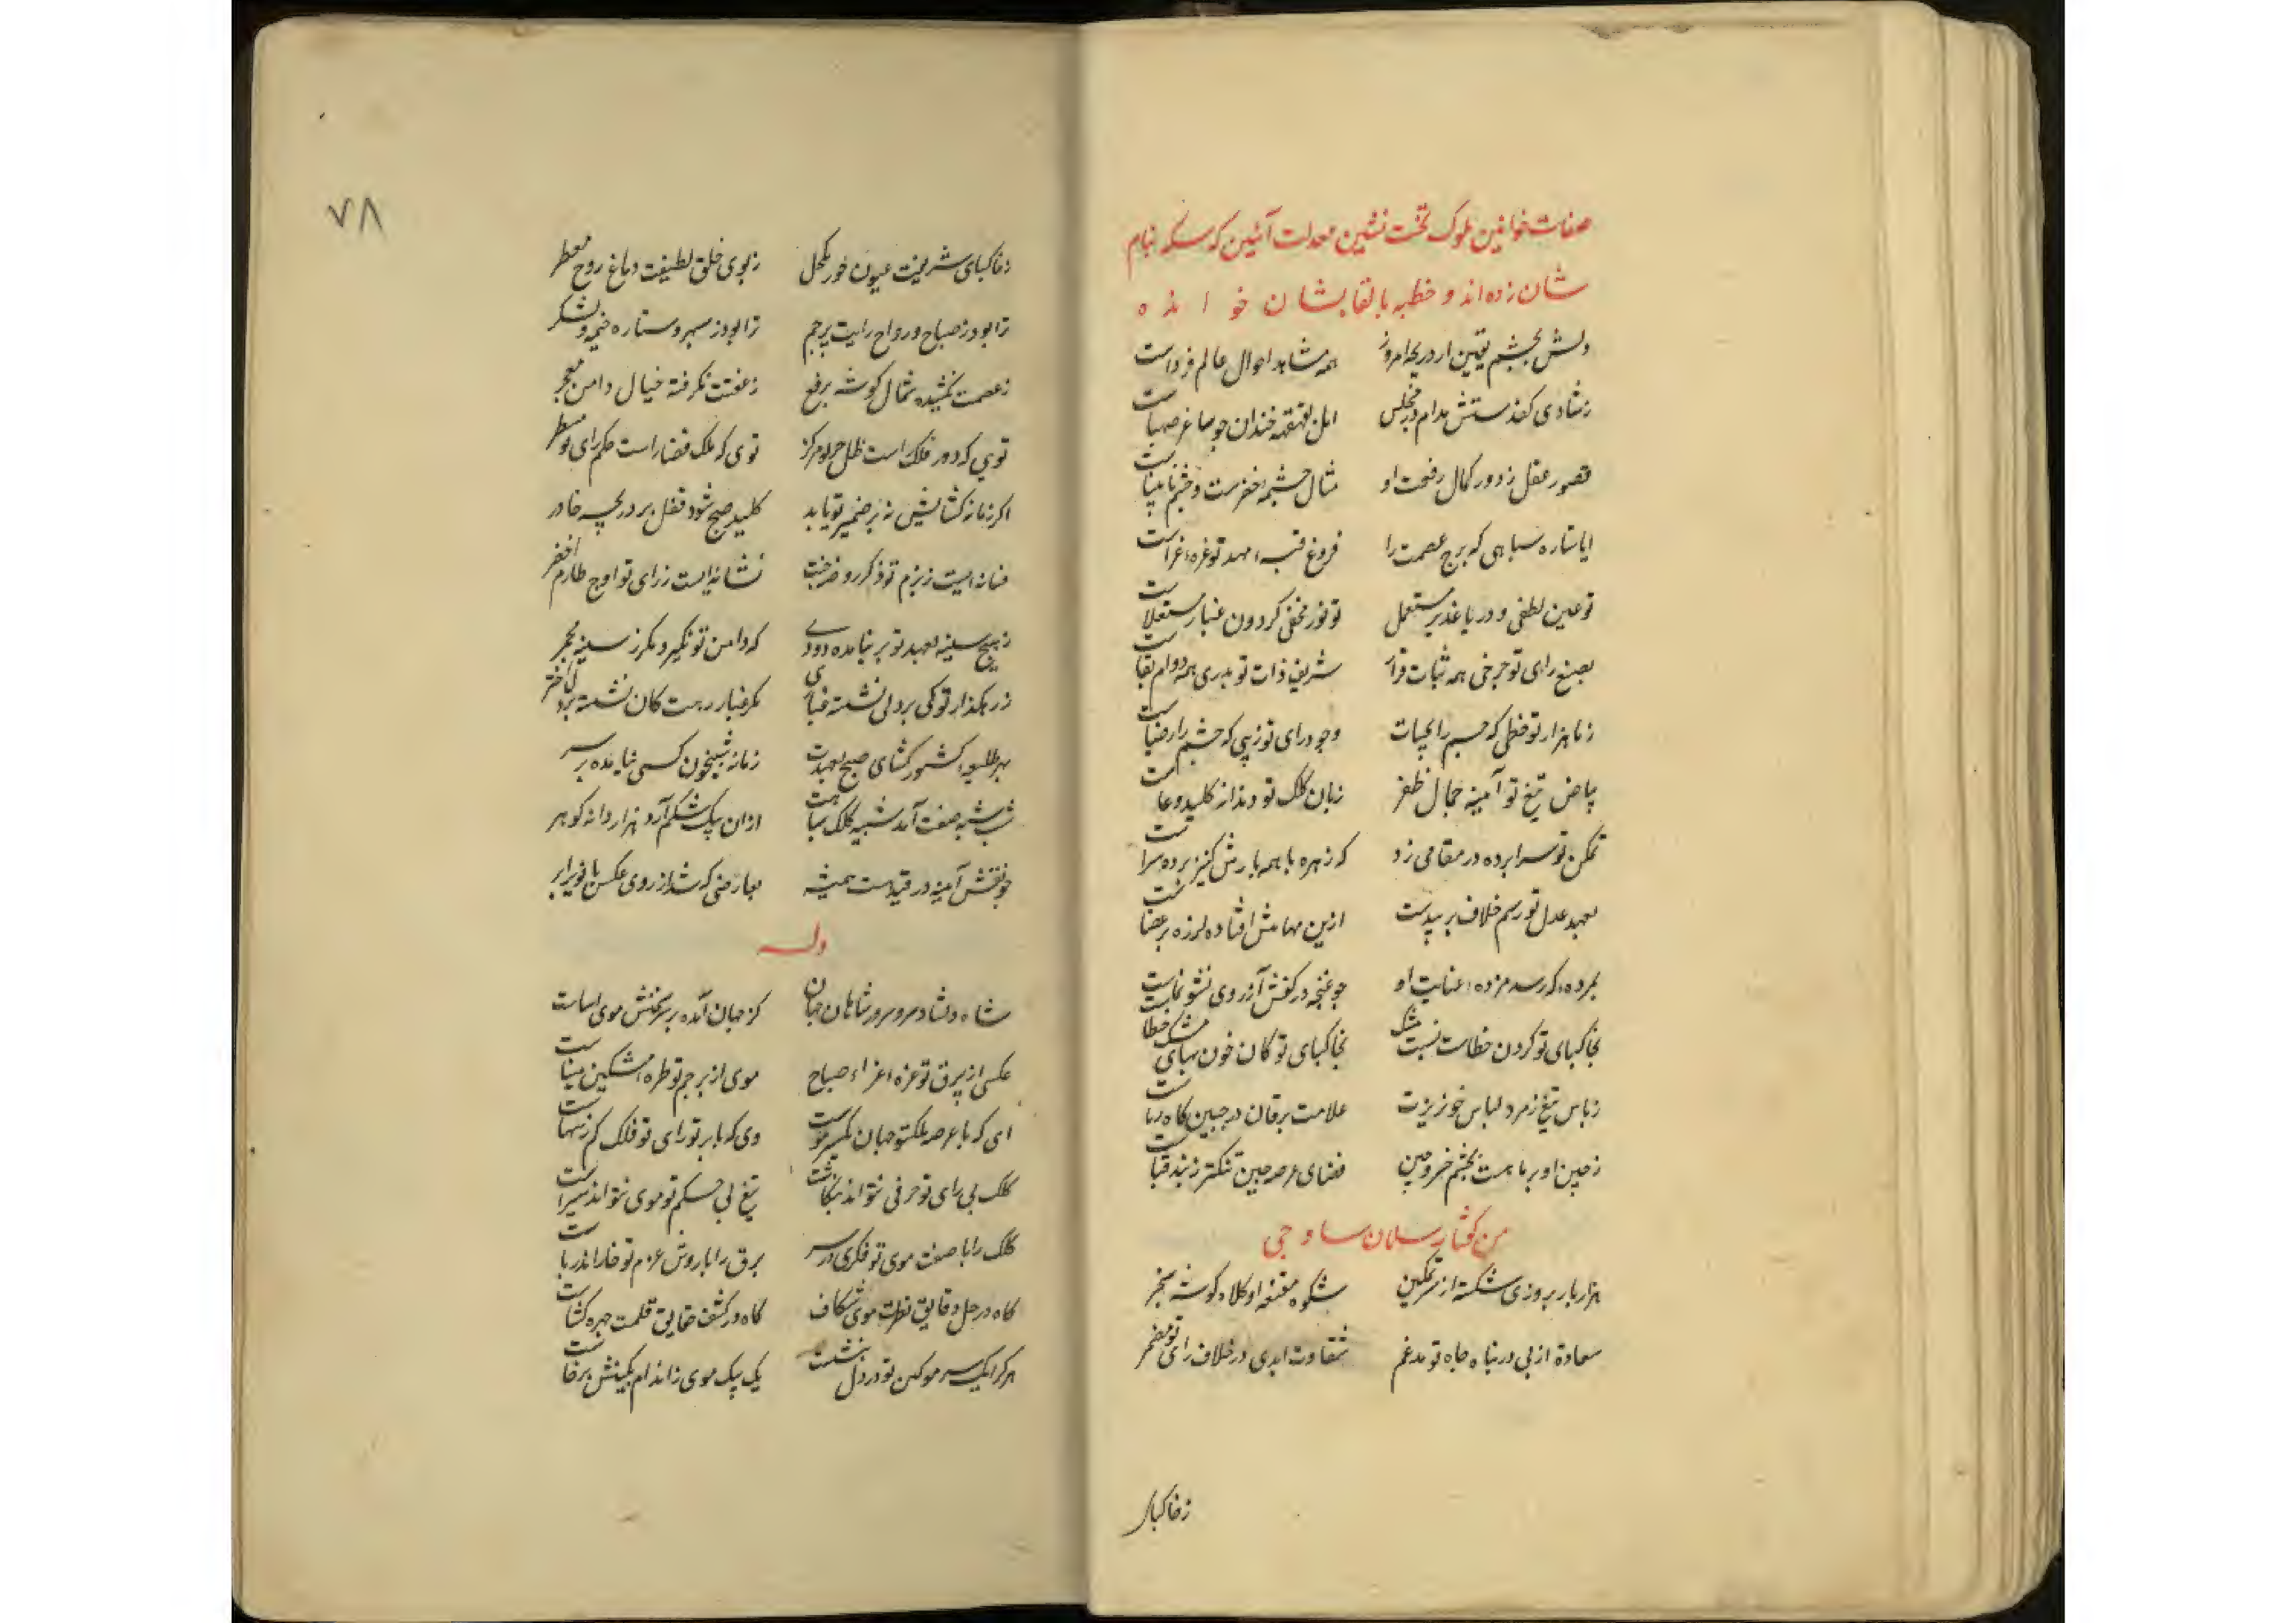 صفات خواتین ملوک تخت نشین معدلت آئین که سکه بنام
شان زده‌اند و خطبه بالقابشان خوانده
دلش بچشم یقین از دریچه امروز همه مشاهد احوال عالم فرداست
زشادی کف دستش مدام در مجلس امل بقهقهه خندان چو ساغر صهباست
قصور عقل ز دور کمال رفعت او مثال چشمه خضرست و چشم نابیناست
ایا ستاره سپاهی که برج عصمت را فروغ قبه مهد تو غره غراست
تو عین لطفی و دریا غدیر مستعمل تو نور محضی گردون غبار مستعلاست
بصبغ رای تو چرخی همه ثبات قرار شریف ذات تو بدری همه دوام بقاست
وجود رای تو زیبی که چشم را ضیاست
بیاض تیغ تو آمینه جمال ظفر زبان کلک تو دندانه کلید دعاست
تمکن تو سراپرده در مقامی زد که زهره با همه بارش کنیز پرده سراست
بعهد عدل تو رسم خلاف بر بیدست ازین مهابتش افتاده لرزه بر اعضاست
بمرده گر رسد مژده عنایت او چو غنچه در کفنش آرزوی نشو نماست
بخاکپای تو کردن خطاست نسبت مشک بخاکپای تو کان خون بهای مشک خطاست
زباس تیغ زمرد لباس خونریزت علامت یرقان در جبین کاه رباست
فضای عرصه چین تنگتر ز بند قباست
من گفتار سلمان ساوجی
هزار بار بروزی شکسته از سر تمکین شکوه مقنعه او کلاه گوشه سنجر
سعادة ازلی در پناه جاه تو مدغم شقاوت ابدی در خلاف رای تو مضمر
زخاکپای
۷۸
زخاکپای شریفت عیون حور مکحل زبوی خلق لطیفت دماغ روح معطر
ترا بود ز صباح و رواح رایت پرچم ترا بود ز سپهر و ستاره خیمه و لشکر
زعصمتت نکشیده شمال گوشه برقع زعفتت نگرفته خیال دامن معجر
توی که دور فلک راست ظل چتر تو مرکز توی که ملک قضا راست حکم رای تو مسطر
اگر زمانه گشایش نه بر ضمیر تو یابد کلید صبح شود قفل بر دریچه خاور
فسانه‌ایست زبزم تو ذکر روضه جنت نشانه‌ایست زرای تو اوج طارم اخضر
زهیچ سینه بعهد تو بر نیامده دودی که دامن تو نگیرد مگر ز سینه مجمر
ز رهگذار تو کی بر دلی نشسته غباری مگر غبار رهت کان نشسته بر دل اختر
بهر طلیعه کشور گشای صبح بعهدت زمانه شبیخون کسی نیامده بر سر
شب شبه صفت آمد شبیه کلک سیاهت ازان بیک شکم آرد هزار دانه گوهر
چو نقش آینه در قید تست همیشه
وله
شاه دلشاد سرو سرور شاهان جهان کز جهان آمده بر سر سخنش موی اساست
عکسی از بیرق تو غره غراء صباح موی از پرچم تو طره مشکین مساست
ای که با عرصه ملک تو جهان یکسر موست وی که با پرتو رای تو فلک کم ز سهاست
کلک بی رای تو حرفی نتواند بنگاشت تیغ بی حکم تو موی نتواند پیراست
کلک را با صفت موی تو فکری در سر برق را با روش عزم تو خار اندر پاست
گاه در حل دقایق نظرت موی شکاف گاه در کشف حقایق قلمت چهره گشاست
هر کرا یک سر مو کین تو در دل بنشست یک بیک موی ز اندام بکینش برخاست